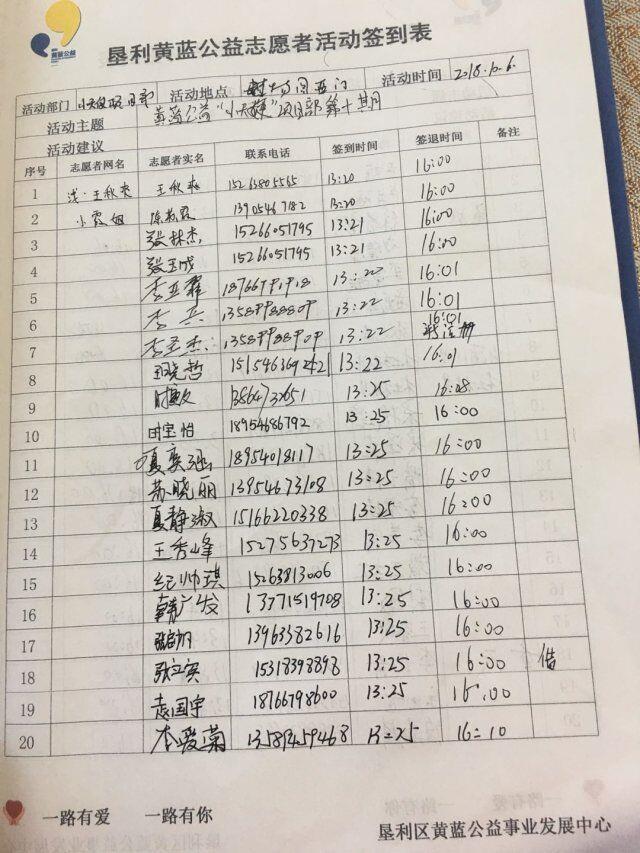 黄蓝公益
垦利黄蓝公益志愿者活动签到表
活动部门 活动地点 活动时间 2018.10.6.
活动主题 黄蓝公益“小天使”项目部第十期月
活动建议
序号 志愿者网名 志愿者实名 联系电话 签到时间 签退时间 备注
1 浅·王秋爽 王秋爽 15263805565 13:20 16:00
2 小霞姐 13905467182 13:20 16:00
3 张林杰 15266051795 13:21 16:00
4 张玉成 15266051795 13:21 16:00
5 13:22 16:01
6 李兵 13:22 16:01
7 13:22 16:01
8 13:22 16:01
9 13:25 16:28
10 田宝怡 18954686792 13:25 16:00
11 夏奕涵 18954018117 13:25 16:00
12 苏晓丽 13954673108 13:25 16:00
13 夏静淑 15166220338 13:25 16:00
14 王秀峰 15275637273 13:25 16:00
15 纪帅琪 15263813006 13:25 16:00
16 韩广发 13771519708 13:25 16:00
17 13963382616 13:25 16:00
18 张立英 15318398898 13:25 16:00
19 袁国宇 18766798600 13:25 16:00
20 李爱菊 13589459468 13:25 16:10
一路有爱 一路有你
垦利区黄蓝公益事业发展中心